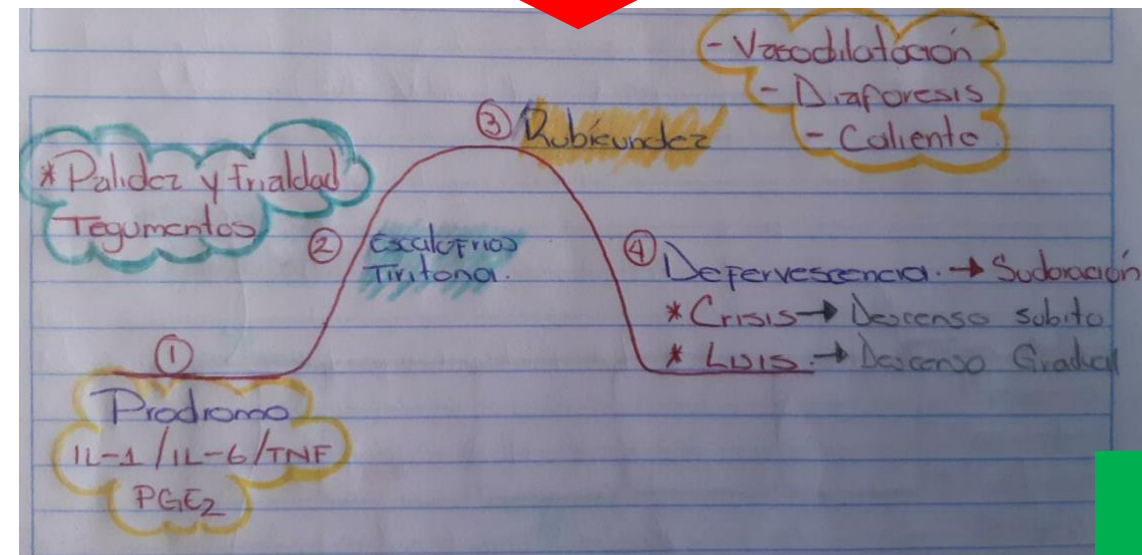 - Vasodilatación
- Diaforesis
- Caliente
③ Rubicundez
* Palidez y frialdad
Tegumentos
② Escalofrios
Tiritona.
④ Defervescencia. → Sudoración
* Crisis → Descenso subito
* Lisis. → Descenso Gradual
①
Prodromo
IL-1 / IL-6 / TNF
PGE2